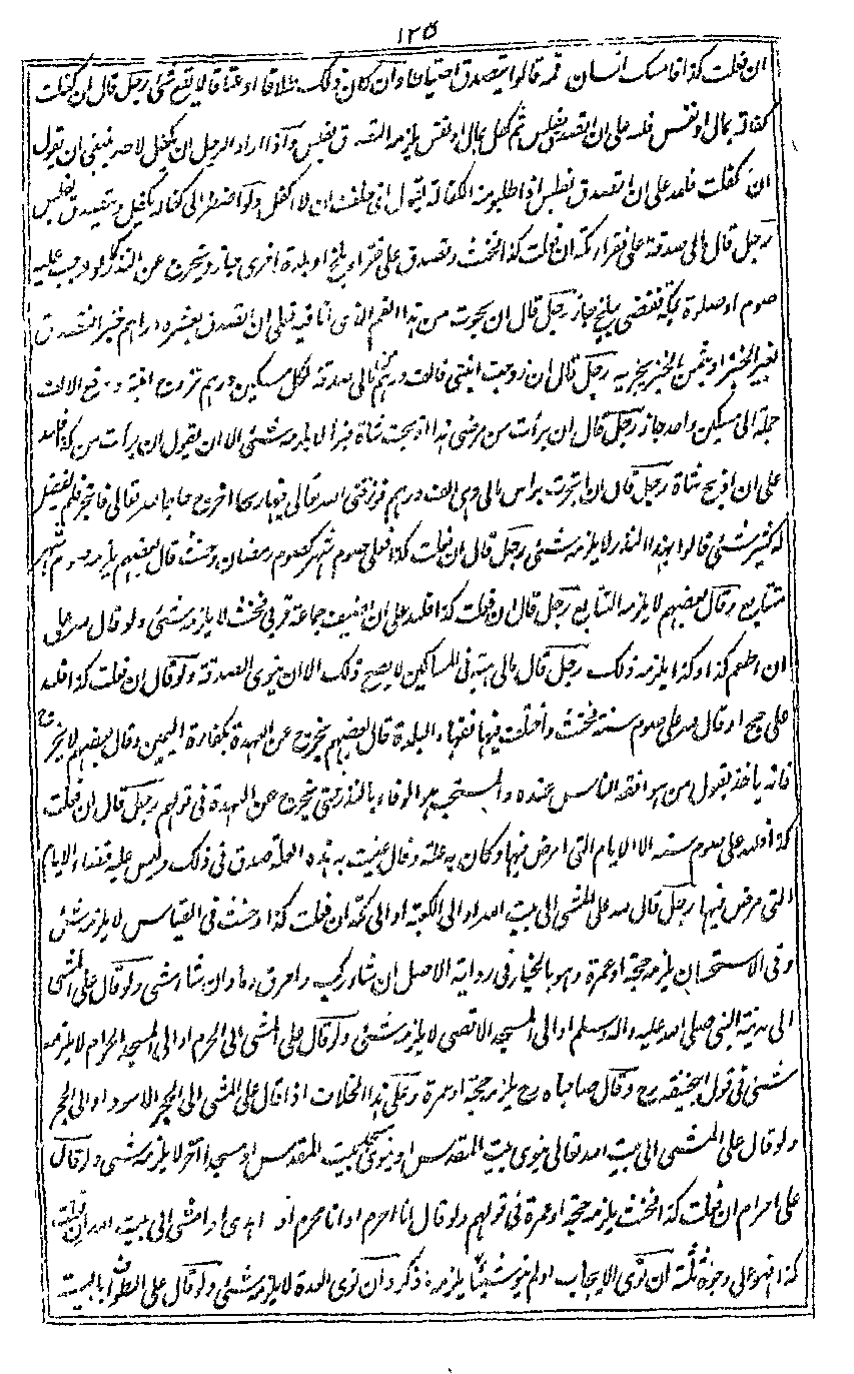 ١٢٥
ان فعلت كذا فامسك انسان فمه قالوا يتصدق احتياطا وان كان ذلك طلاقا او عتاقا لا يقع شئ رجل قال ان كفلت
كفالة بمال او نفس فلله على ان اتصدق بفلس ثم كفل بمال او نفس يلزمه التصدق بفلس واذا اراد الرجل ان لا يكفل لاحد ينبغى ان يقول
ان كفلت فلله على ان اتصدق بفلس اذا طلبو منه الكفالة يقول انى حلفت ان لا اكفل ولو اضطر الى كفالة يكفل ويتصدق بفلس
رجل قال مالى صدقة على فقراء مكة ان فعلت كذا فحنث وتصدق على فقراء بلخ او بلدة اخرى جاز ويخرج عن النذر كما لو وجب عليه
صوم او صلوة بمكة فقضى ببلخ جاز رجل قال ان نجوت من هذا الغم الذى انا فيه فعلى ان اتصدق بعشرة دراهم خبزا فتصدق
بغير الخبز او بثمن الخبز يجزيه رجل قال ان زوجت ابنتى فالف درهم من مالى صدقة لكل مسكين درهم فزوج ابنته ودفع الالف
جملة الى مسكين واحد جاز رجل قال ان برأت من مرضى هذا ذبحت شاة فبرأ لا يلزمه شئ الا ان يقول ان برأت من كذا فلله
على ان اذبح شاة رجل قال ان اتجرت براس مالى وهى الف درهم فرزقنى الله تعالى فيها ربحا اخرج حاجا لله تعالى فاتجر فلم يفضل
له كثير شئ قالوا بهذا النذر لا يلزمه شئ رجل قال ان فعلت كذا فعلى صوم شهر كصوم رمضان وحنث قال بعضهم يلزمه صوم شهر
متتابع وقال بعضهم لا يلزمه التتابع رجل قال ان فعلت كذا فلله على ان اضيف جماعة قربى فحنث لا يلزمه شئ ولو قال لله على
ان اطعم كذا وكذا يلزمه ذلك رجل قال مالى هبة فى المساكين لا يصح ذلك الا ان ينوى الصدقة ولو قال ان فعلت كذا فلله
على حج او قال لله على صوم سنة فحنث واختلف فيها فقهاء البلدة قال بعضهم يخرج عن العهدة بكفارة اليمين وقال بعضهم لا يخرج
فانه ياخذ بقول من هو افقه الناس عنده والمستحب هو الوفاء بالنذر حتى يخرج عن العهدة فى قولهم رجل قال ان فعلت
كذا فلله على صوم سنة الا الايام التى امرض فيها وكان به علة وقال عنيت به هذه العلة صدق فى ذلك وليس عليه قضاء الايام
التى مرض فيها رجل قال لله على المشى الى بيت الله او الى الكعبة او الى مكة ان فعلت كذا وحنث فى القياس لا يلزمه شئ
وفى الاستحسان يلزمه حجة او عمرة وهو بالخيار فى رواية الاصل ان شاء ركب واهرق دما وان شاء مشى ولو قال على المشى
الى مدينة النبى صلى الله عليه واله وسلم او الى المسجد الاقصى لا يلزمه شئ ولو قال على المشى الى الحرم او الى المسجد الحرام لا يلزمه
شئ فى قول ابيحنيفة رح وقال صاحباه رح يلزمه حجة او عمرة وعلى هذا الخلاف اذا قال على المشى الى الحجر الاسود او الى الحجر
ولو قال على المشى الى بيت الله تعالى ينوى بيت المقدس او ينوى مسجد بيت المقدس او مسجدا اخر لا يلزمه شئ ولو قال
على احرام ان فعلت كذا فحنث يلزمه حجة او عمرة فى قولهم ولو قال انا احرم او انا محرم او اهدى او امشى الى بيت الله ان فعلت
كذا فهو على وجوه ثلثة ان نوى الايجاب او لم ينو شيئا يلزمه ما ذكر وان نوى العدة لا يلزمه شئ ولو قال على الطواف بالبيت